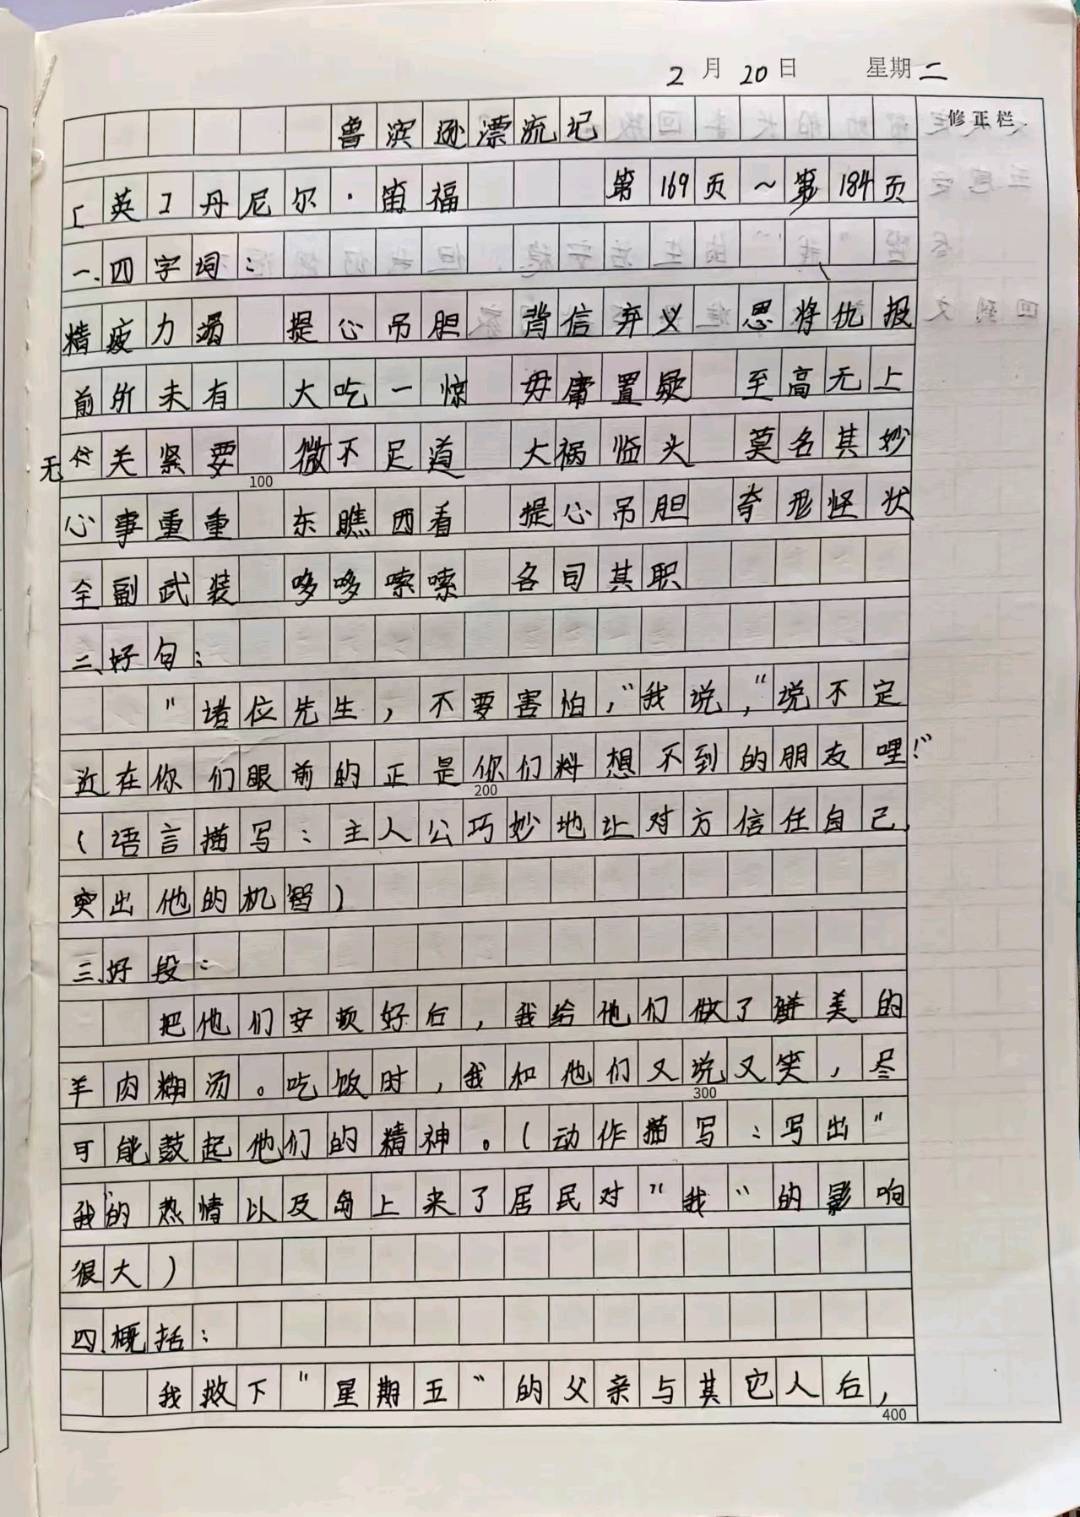 2月20日 星期二
修正栏
鲁滨逊漂流记
[英]丹尼尔·笛福 第169页～第184页
一、四字词：
精疲力竭 提心吊胆 背信弃义 恩将仇报
前所未有 大吃一惊 毋庸置疑 至高无上
无关紧要 微不足道 大祸临头 莫名其妙
心事重重 东瞧西看 提心吊胆 奇形怪状
全副武装 哆哆嗦嗦 各司其职
二、好句：
"诸位先生，不要害怕，"我说，"说不定
近在你们眼前的正是你们料想不到的朋友哩！"
（语言描写：主人公巧妙地让对方信任自己，
突出他的机智）
三、好段：
把他们安顿好后，我给他们做了鲜美的
羊肉糊汤。吃饭时，我和他们又说又笑，尽
可能鼓起他们的精神。（动作描写：写出"
我"的热情以及岛上来了居民对"我"的影响
很大）
四、概括：
我救下"星期五"的父亲与其它人后，
100
200
300
400